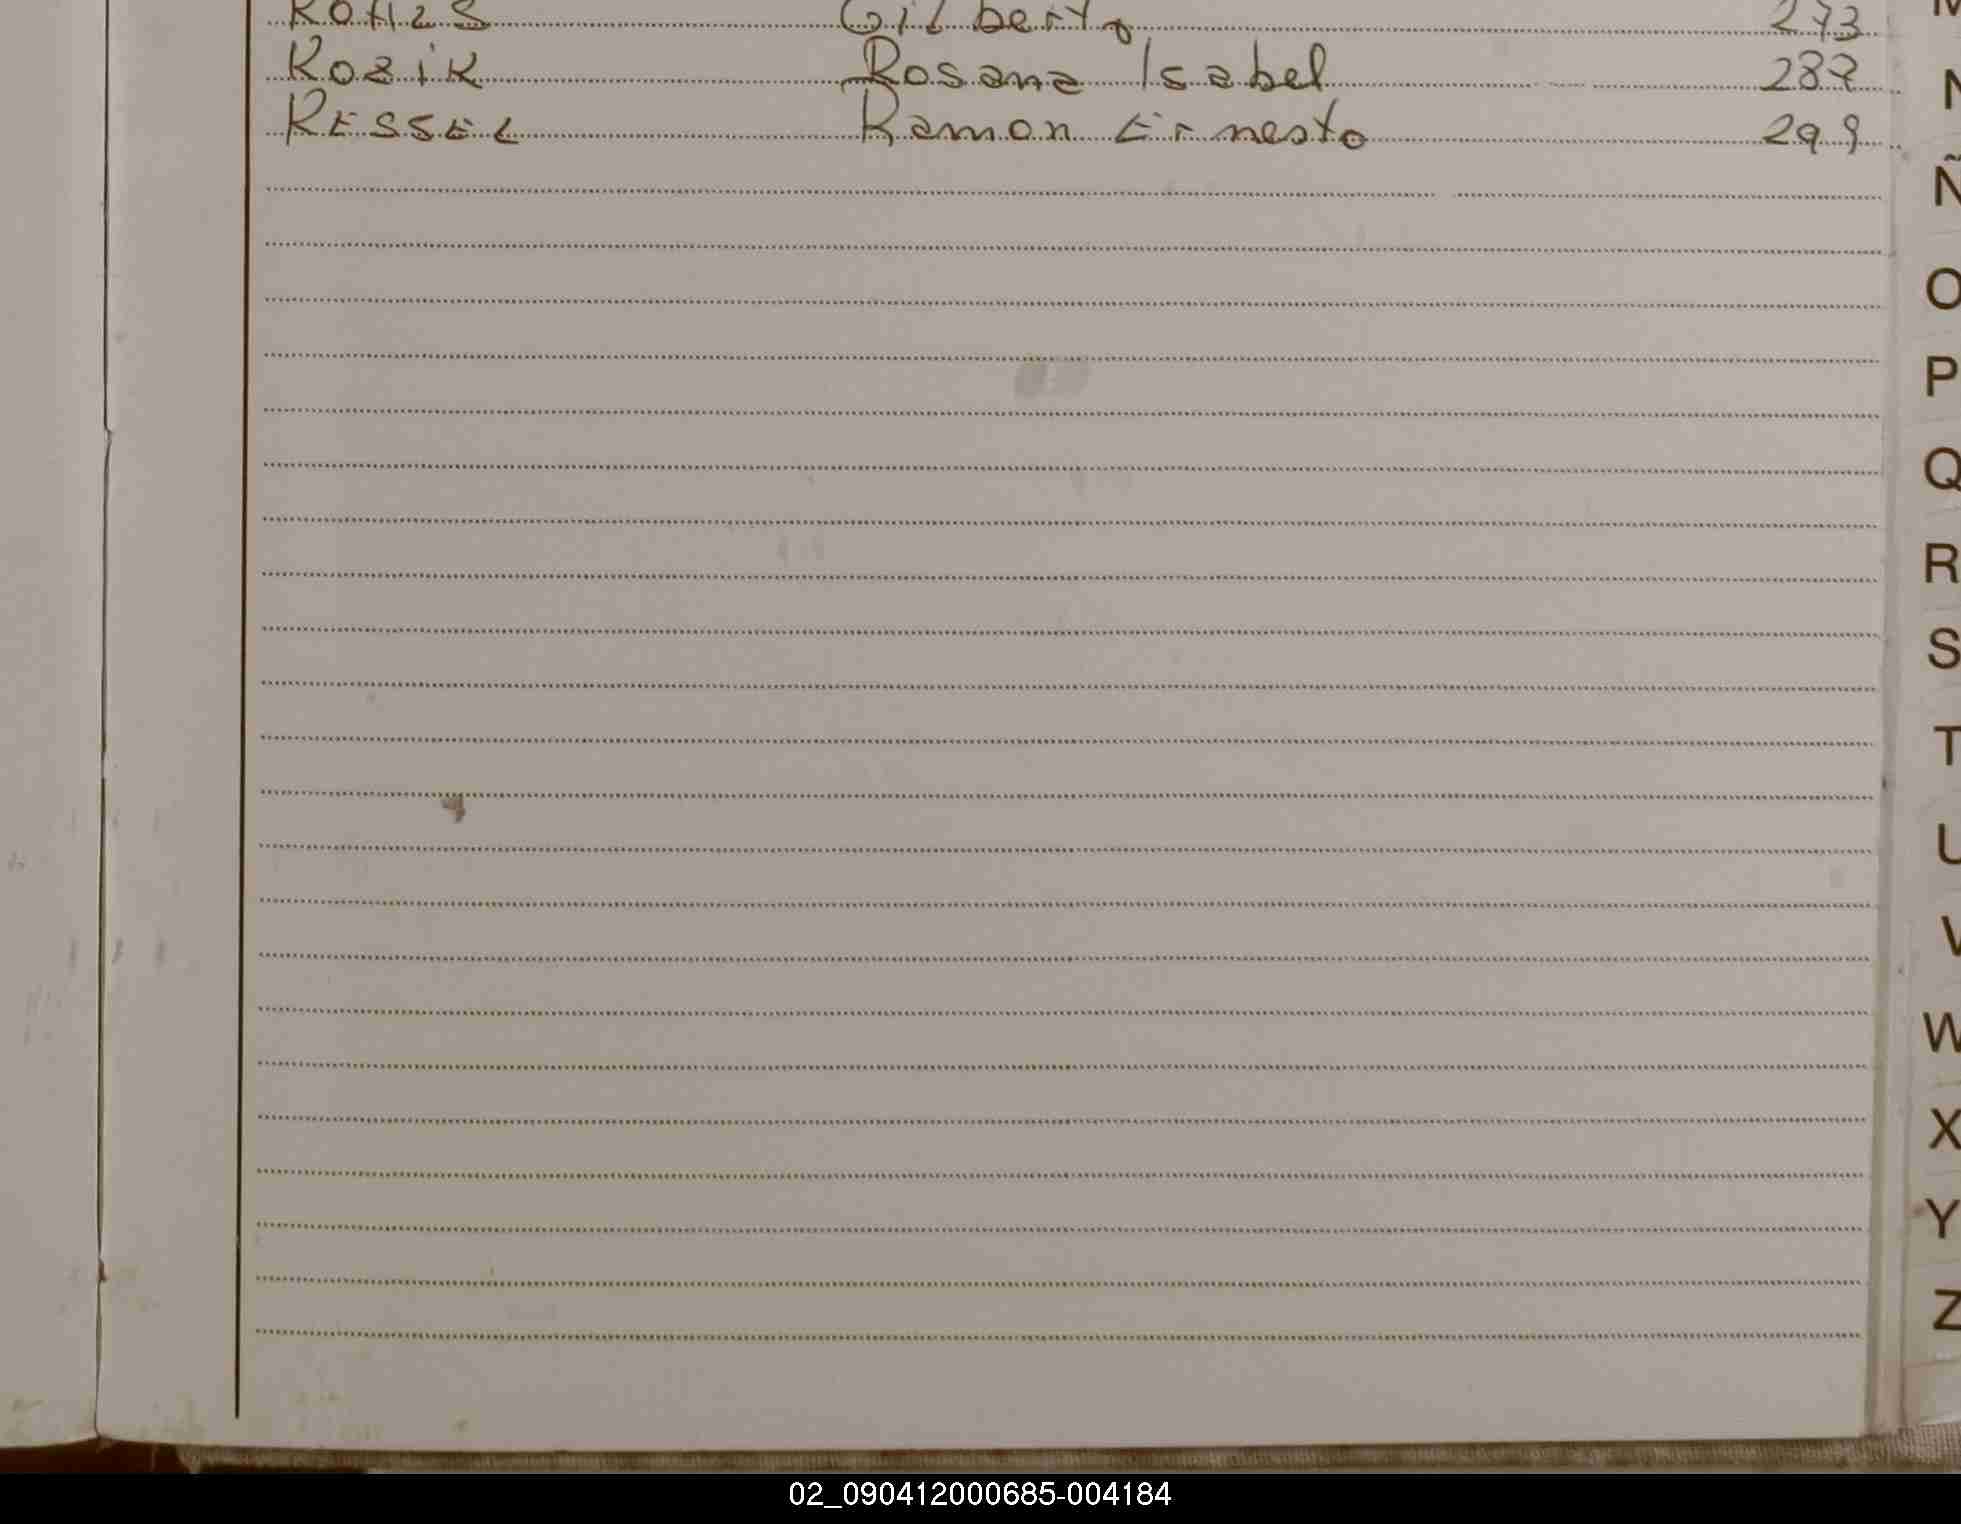 Gilberto 273
Kozik Rosana Isabel 287
KESSEL Ramon Ernesto 299
N
Ñ
O
P
Q
R
S
T
U
V
W
X
Y
Z
02_090412000685-004184